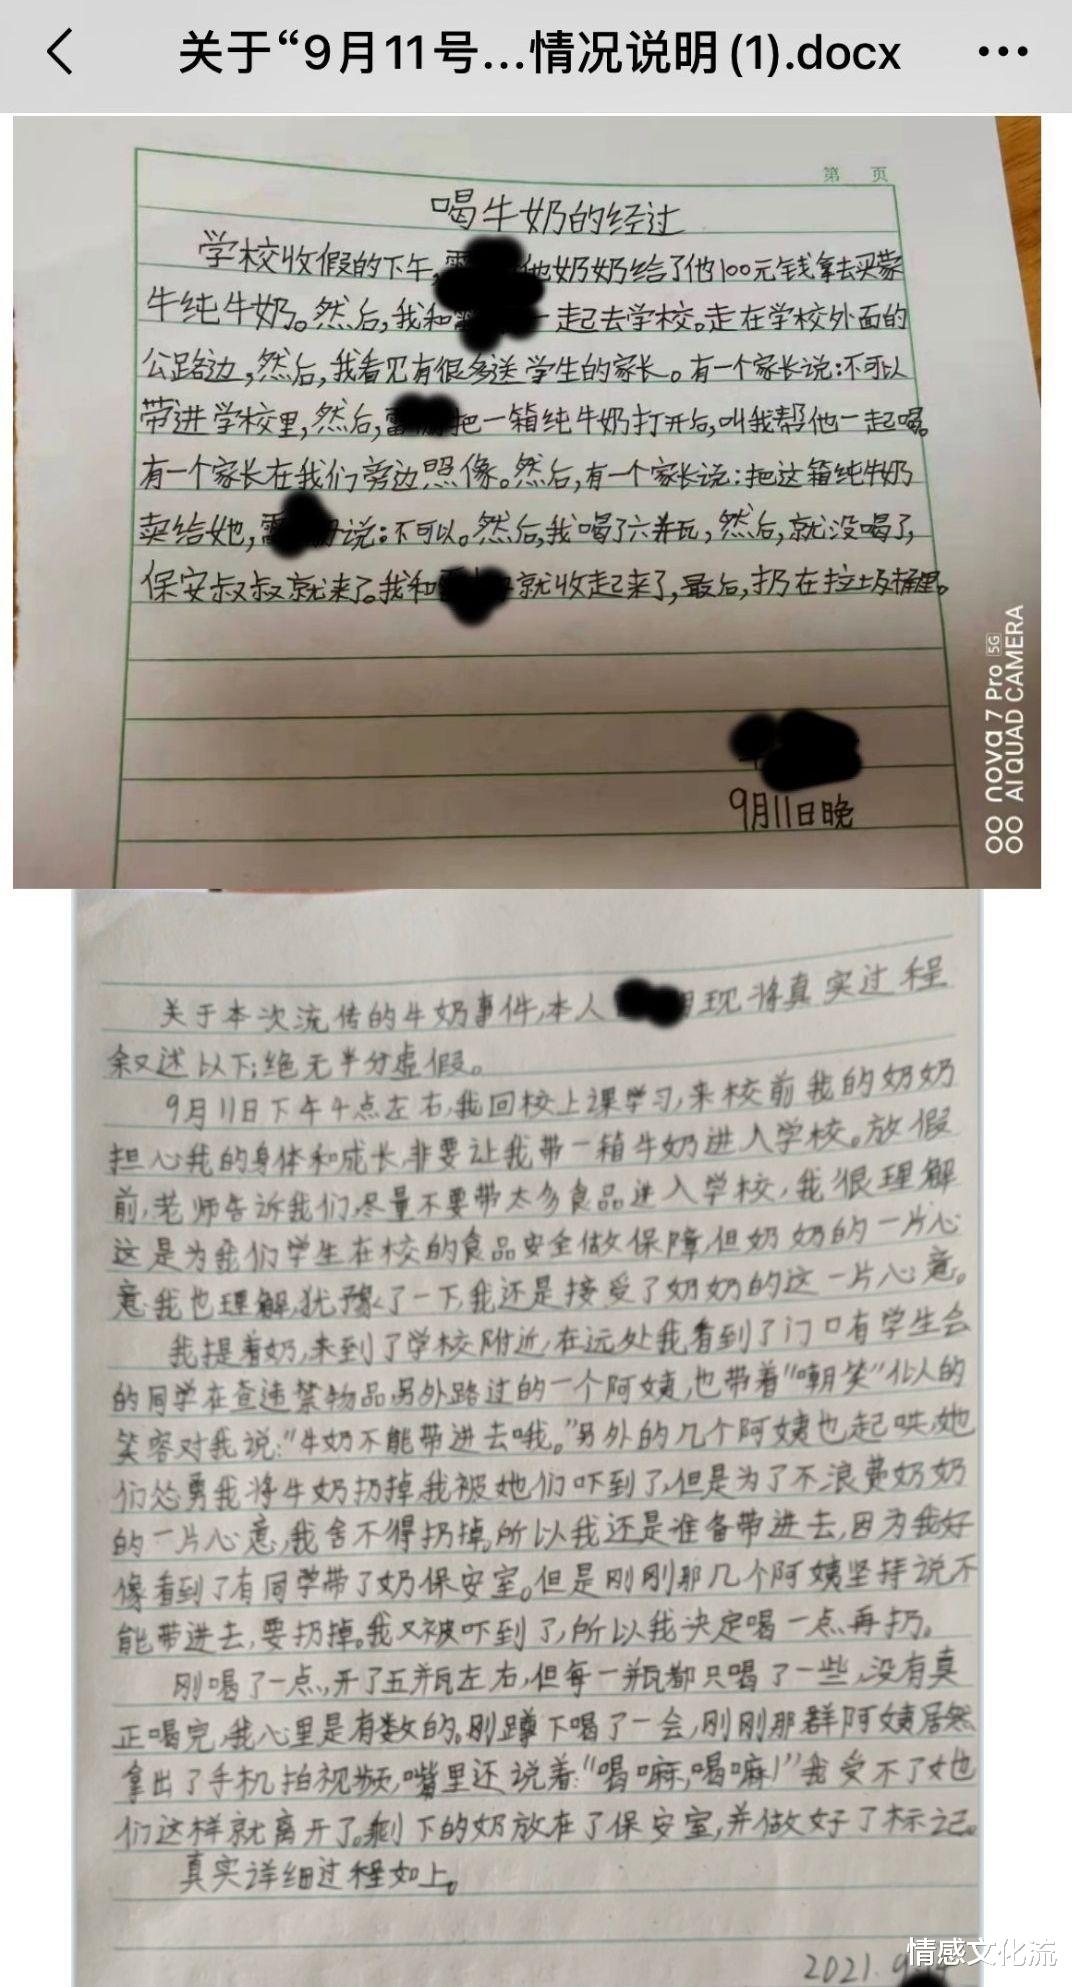 关于“9月11号...情况说明(1).docx
第 页
喝牛奶的经过
学校收假的下午,他奶奶给了他100元钱拿去买蒙
牛纯牛奶。然后,我和一起去学校。走在学校外面的
公路边,然后,我看见有很多送学生的家长。有一个家长说:不可以
带进学校里,然后,把一箱纯牛奶打开后,叫我帮他一起喝。
有一个家长在我们旁边照像。然后,有一个家长说:把这箱纯牛奶
卖给她,说:不可以。然后,我喝了六瓶,然后,就没喝了,
保安叔叔就来了。我和就收起来了,最后,扔在垃圾桶里。
9月11日晚
nova 7 Pro 5G
AI QUAD CAMERA
关于本次流传的牛奶事件,本人现将真实过程
叙述以下;绝无半分虚假。
9月11日下午4点左右,我回校上课学习,来校前我的奶奶
担心我的身体和成长,非要让我带一箱牛奶进入学校。放假
前,老师告诉我们,尽量不要带太多食品进入学校,我很理解
这是为我们学生在校的食品安全做保障,但奶奶的一片心
意我也理解,犹豫了一下,我还是接受了奶奶的这一片心意。
我提着奶,来到了学校附近,在远处我看到了门口有学生会
的同学在查违禁物品,另外路过的一个阿姨,也带着“嘲笑”化人的
笑容对我说:“牛奶不能带进去哦。”另外的几个阿姨也起哄,她
们怂勇我将牛奶扔掉,我被她们吓到了,但是为了不浪费奶奶
的一片心意,我舍不得扔掉,所以我还是准备带进去,因为我好
像看到了有同学带了奶保安室。但是刚刚那几个阿姨坚持说不
能带进去,要扔掉。我又被吓到了,所以我决定喝一点再扔。
刚喝了一点,开了五瓶左右,但每一瓶都只喝了一些,没有真
正喝完,我心里是有数的。刚蹲下喝了一会,刚刚那群阿姨居然
拿出了手机拍视频,嘴里还说着:“喝嘛,喝嘛!”我受不了她
们这样就离开了。剩下的奶放在了保安室,并做好了标记。
真实详细过程如上。
2021.9
情感文化流